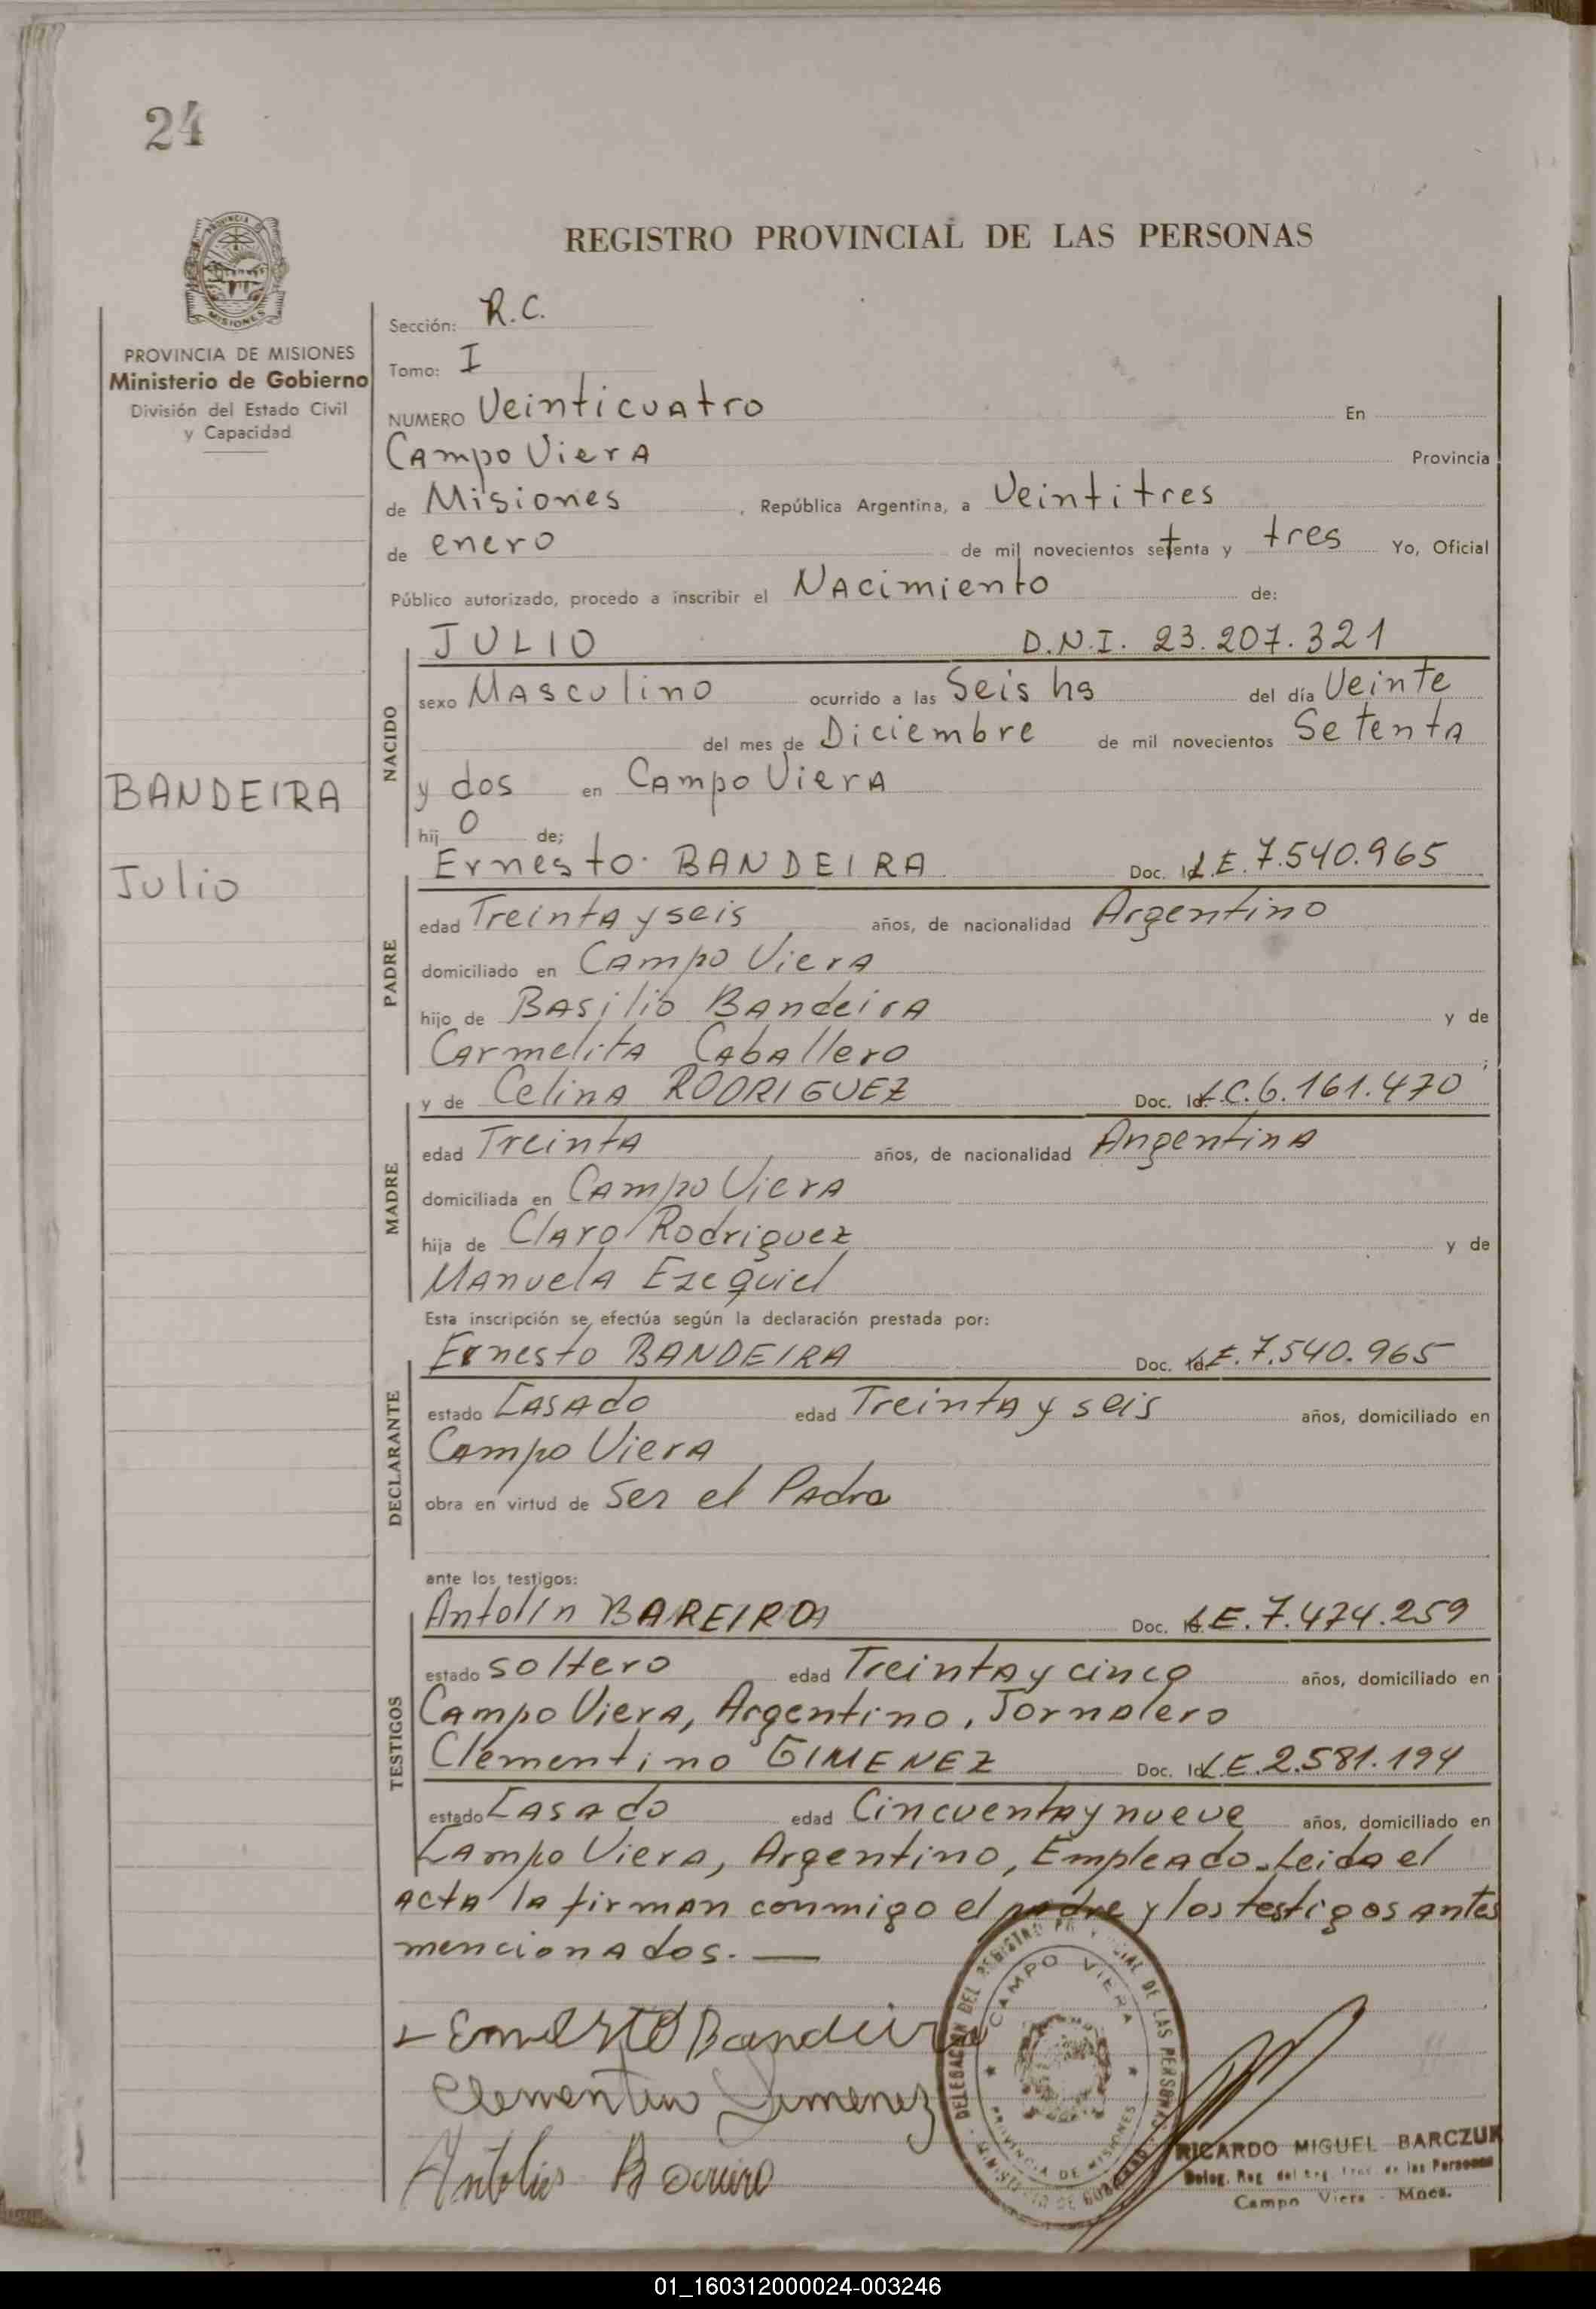 24
PROVINCIA
MISIONES
PROVINCIA DE MISIONES
Ministerio de Gobierno
División del Estado Civil
y Capacidad
BANDEIRA
Julio
REGISTRO PROVINCIAL DE LAS PERSONAS
Sección: R.C.
Tomo: I
NUMERO Veinticuatro En
Campo Viera Provincia
de Misiones , República Argentina, a Veintitres
de enero de mil novecientos setenta y tres Yo, Oficial
Público autorizado, procedo a inscribir el Nacimiento de:
NACIDO
JULIO D.N.I. 23.207.321
sexo Masculino ocurrido a las Seis hs del día Veinte
del mes de Diciembre de mil novecientos Setenta
y dos en Campo Viera
hij o de;
PADRE
Ernesto BANDEIRA Doc. Id. L.E. 7.540.965
edad Treinta y seis años, de nacionalidad Argentino
domiciliado en Campo Viera
hijo de Basilio Bandeira y de
Carmelita Caballero ;
MADRE
y de Celina RODRIGUEZ Doc. Id. L.C. 6.161.470
edad Treinta años, de nacionalidad Argentina
domiciliada en Campo Viera
hija de Claro Rodriguez y de
Manuela Ezequiel
Esta inscripción se efectúa según la declaración prestada por:
DECLARANTE
Ernesto BANDEIRA Doc. Id. L.E. 7.540.965
estado Casado edad Treinta y seis años, domiciliado en
Campo Viera
obra en virtud de Ser el Padre
ante los testigos:
TESTIGOS
Antolín BAREIRO Doc. Id. L.E. 7.474.259
estado soltero edad Treinta y cinco años, domiciliado en
Campo Viera, Argentino, Jornalero
Clementino GIMENEZ Doc. Id. L.E. 2.581.194
estado Casado edad Cincuenta y nueve años, domiciliado en
Campo Viera, Argentino, Empleado. Leida el
acta la firman conmigo el padre y los testigos antes
mencionados. —
Ernesto Bandeira
Clementino Jimenez
Antolin Bareiro
DELEGACIÓN DEL REGISTRO PROVINCIAL DE LAS PERSONAS
MINISTERIO DE GOBIERNO
CAMPO VIERA
PROVINCIA DE MISIONES
RICARDO MIGUEL BARCZUK
Deleg. Reg. del Reg. Prov. de las Personas
Campo Viera - Mnes.
01_160312000024-003246